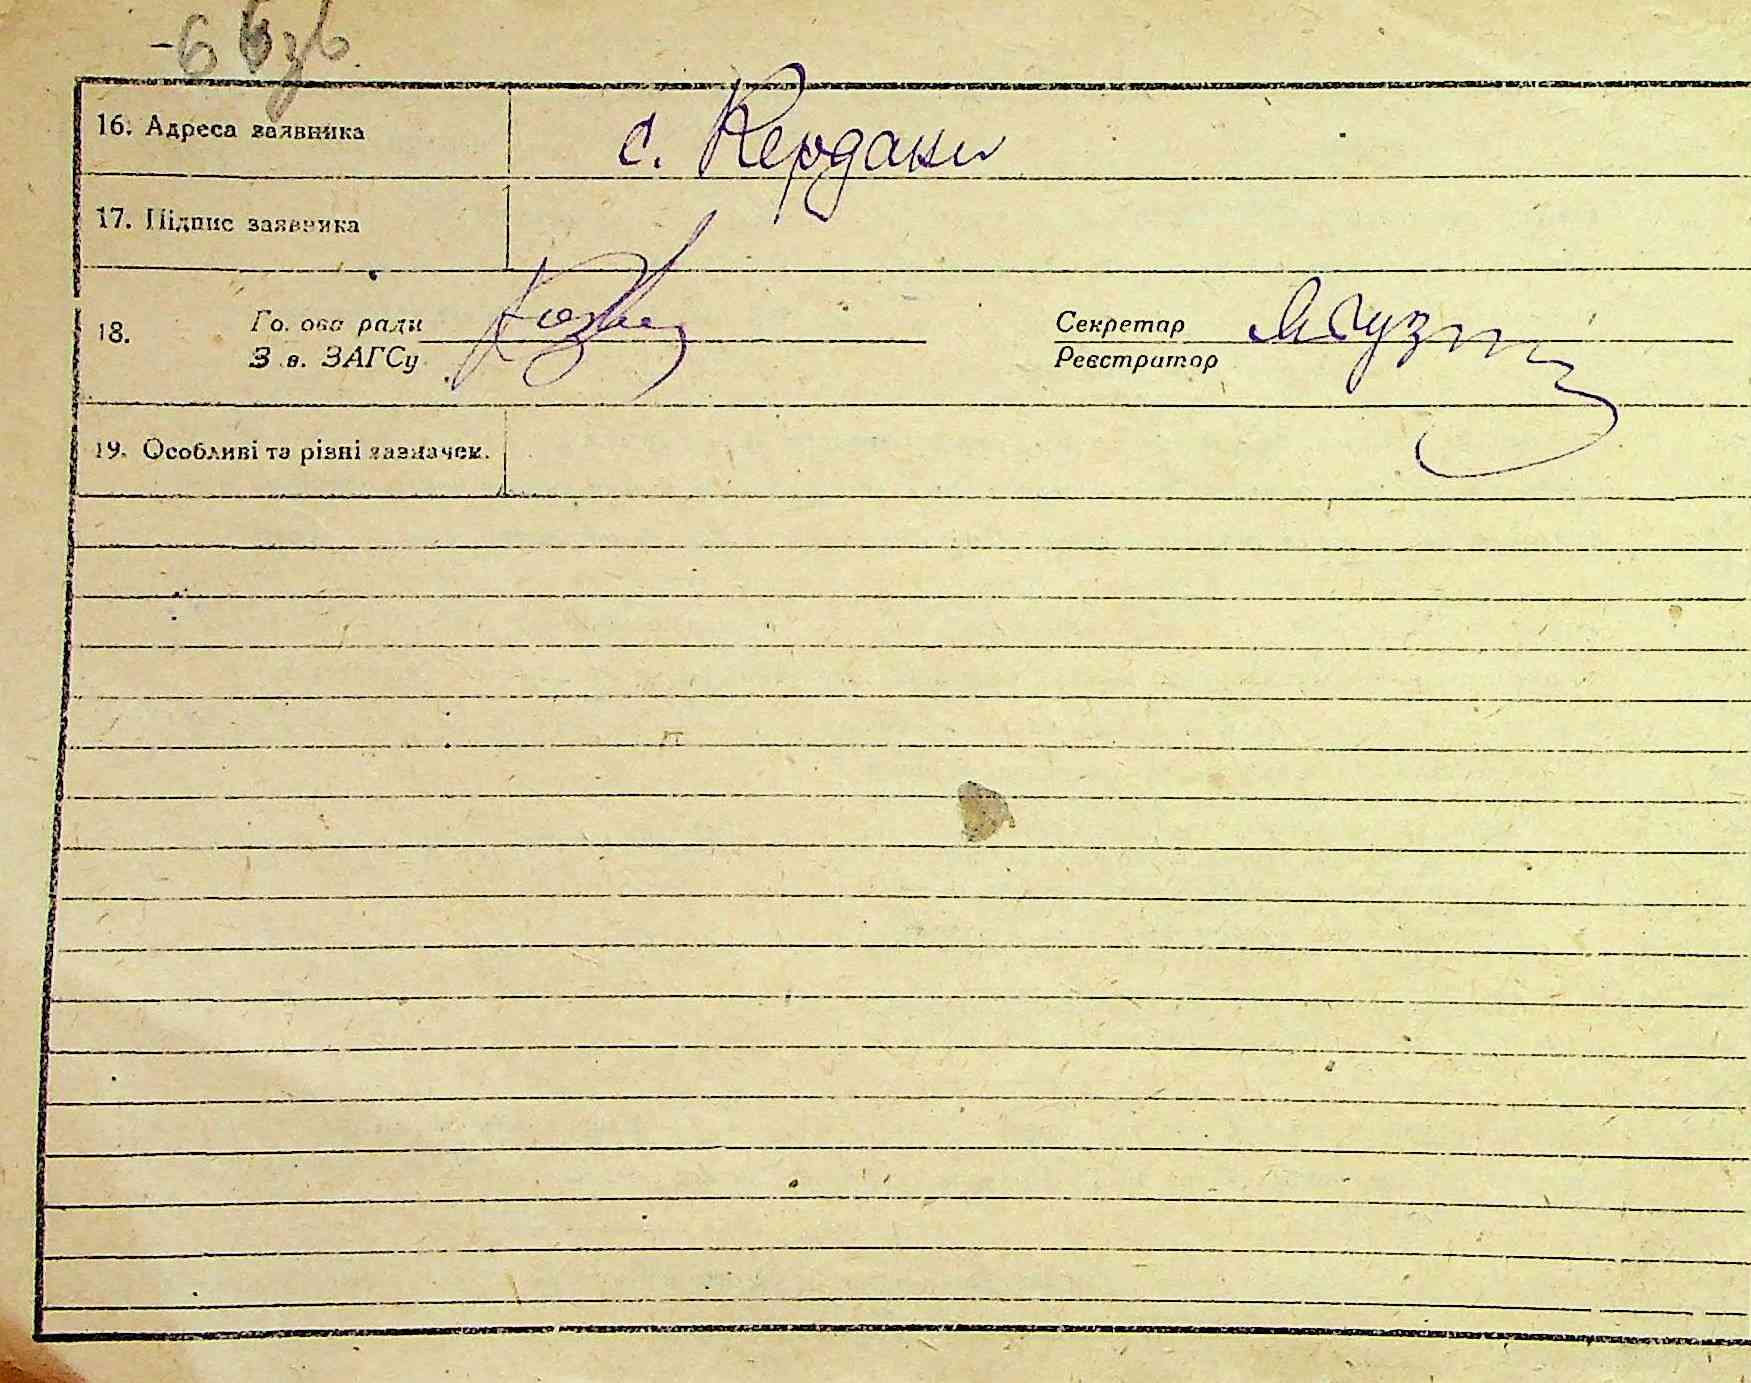 16. Адреса заявника с. Кердани
17. Підпис заявника
18. Голова ради Секретар
Зав. ЗАГСу Реєстратор
19. Особливі та різні зазначек.